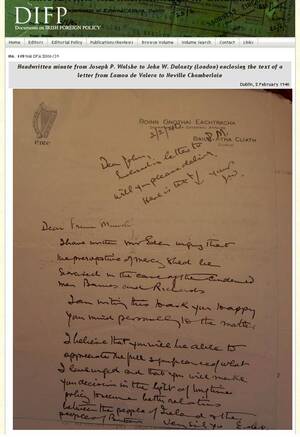 DIFP
Documents on IRISH FOREIGN POLICY
Home Editors Editorial Policy Publications/Reviews Browse Volume Volume Search Contact Links
Handwritten minute from Joseph P. Walshe to John W. Dulanty (London) enclosing the text of a
letter from Eamon de Valera to Neville Chamberlain
Dublin, 2 February 1940
ROINN GNÓTHAÍ EACHTRACHA
BAILE ÁTHA CLIATH
Dear John,
letter to
P.M.
will you please deliver.
Here is text
Yours
Joe
Dear Prime
I have written Mr Eden urging that
the prerogative of mercy shd be
exercised in the case of the condemned
men Barnes and Richards
I am writing this to ask you to apply
your mind personally to the matter
I believe that you will be able to
appreciate the full significance of what
I have urged and that you will make
your decision in the light of
policy to better relations
between the people of Ireland & the
people of Britain